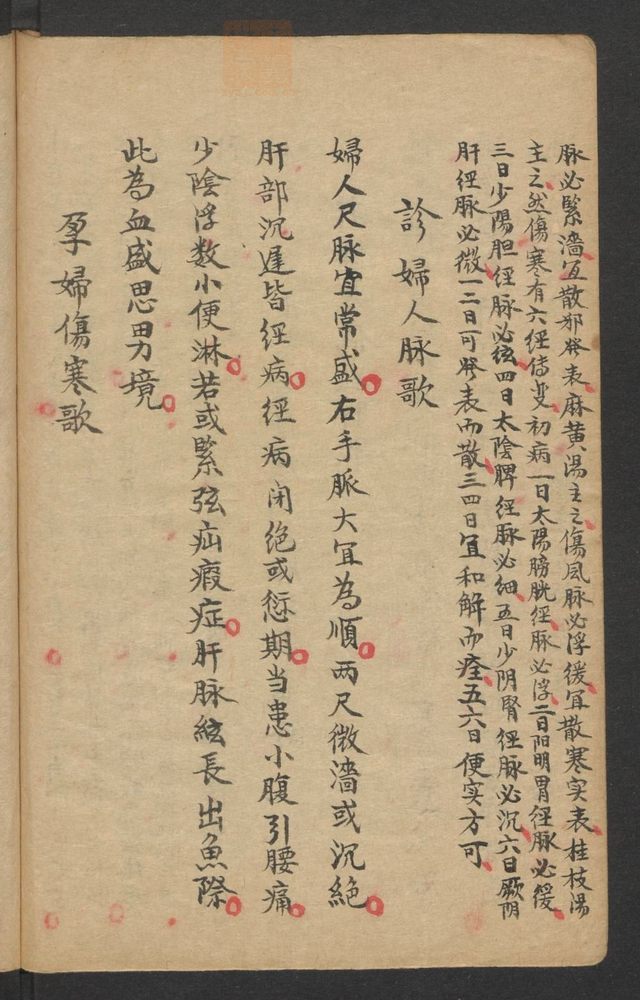 脉必緊濇宜散邪發表麻黄湯主之傷風脉必浮緩宜散寒实表桂枝湯
主之然傷寒有六經传变初病一日太陽膀胱經脉必浮二日阳明胃經脉必緩
三日少陽胆經脉必弦四日太陰脾經脉必细五日少阴腎經脉必沉六日厥阴
肝經脉必微一二日可發表而散三四日宜和解而痊五六日便实方可
診婦人脉歌
婦人尺脉宜常盛右手脈大宜為順两尺微濇或沉絕
肝部沉遲皆經病經病闭绝或愆期当患小腹引腰痛
少陰浮数小便淋若或緊弦疝瘕症肝脉絃長出魚際
此為血盛思男境
孕婦傷寒歌